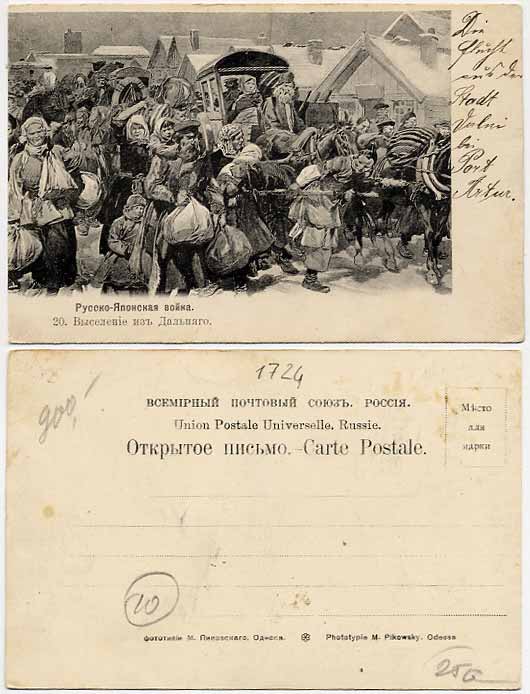 Die
Flucht
aus der
Stadt
Dalni
bei
Port
Artur.
Русско-Японская война.
20. Выселеніе изъ Дальняго.
1724
900,-
ВСЕМІРНЫЙ ПОЧТОВЫЙ СОЮЗЪ. РОССІЯ.
Union Postale Universelle. Russie.
Открытое письмо.—Carte Postale.
Мѣсто
для
марки
20
Фототипія М. Пиковскаго, Одесса. Phototypie M. Pikowsky, Odessa